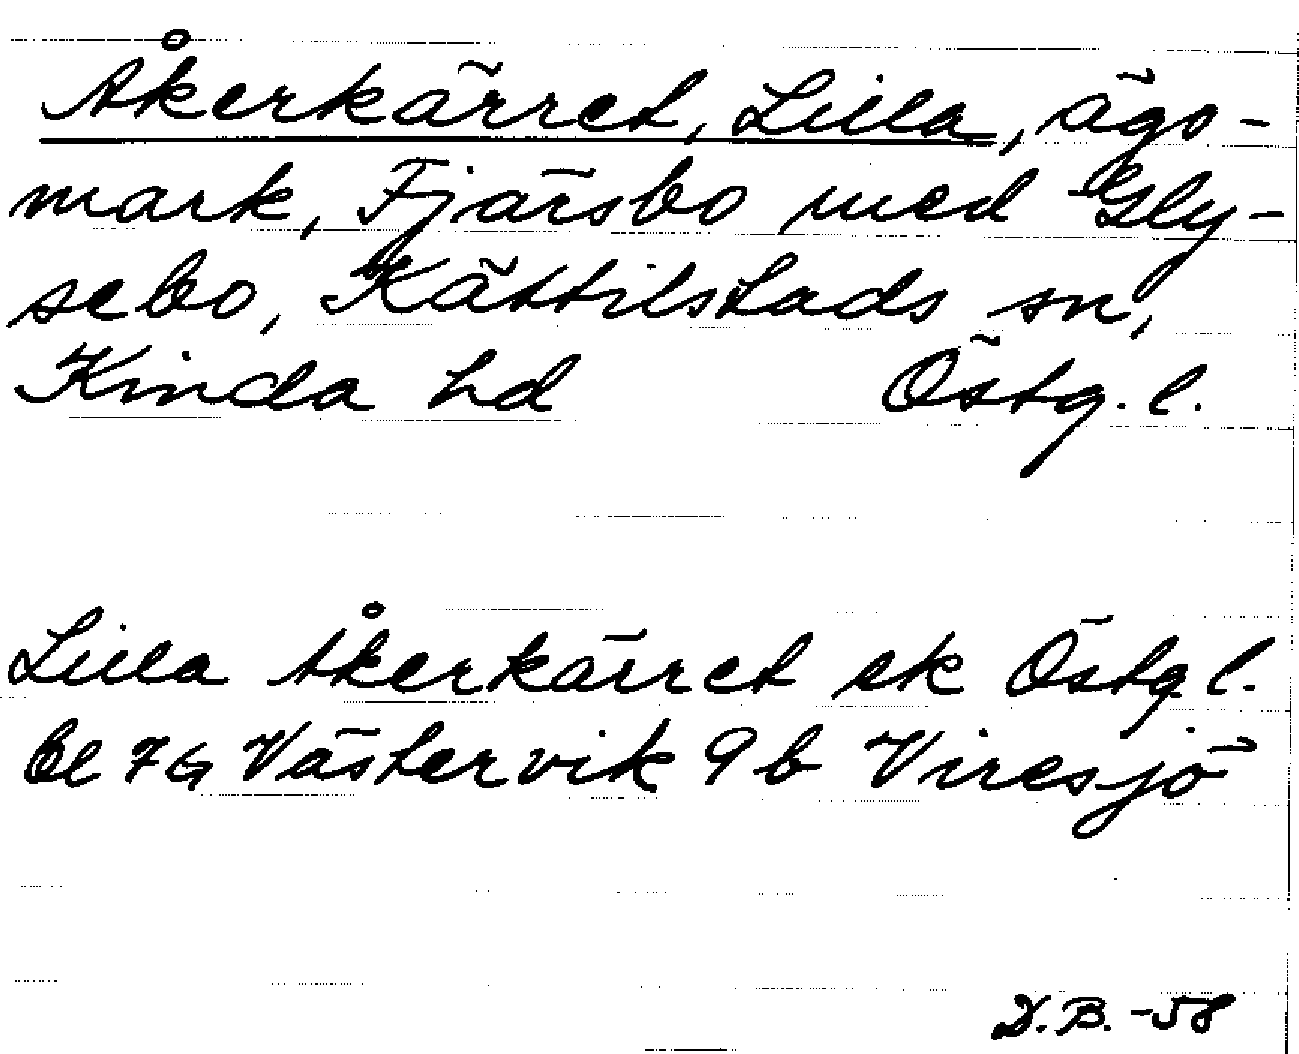 Åkerkärret, Lilla, ägo-
mark, Fjärsbo med Gly-
sebo, Kättilstads sn,
Kinda hd Östg. l.
Lilla Åkerkärret ek Östg l.
bl 7G Västervik 9b Viresjö
D.B. -58